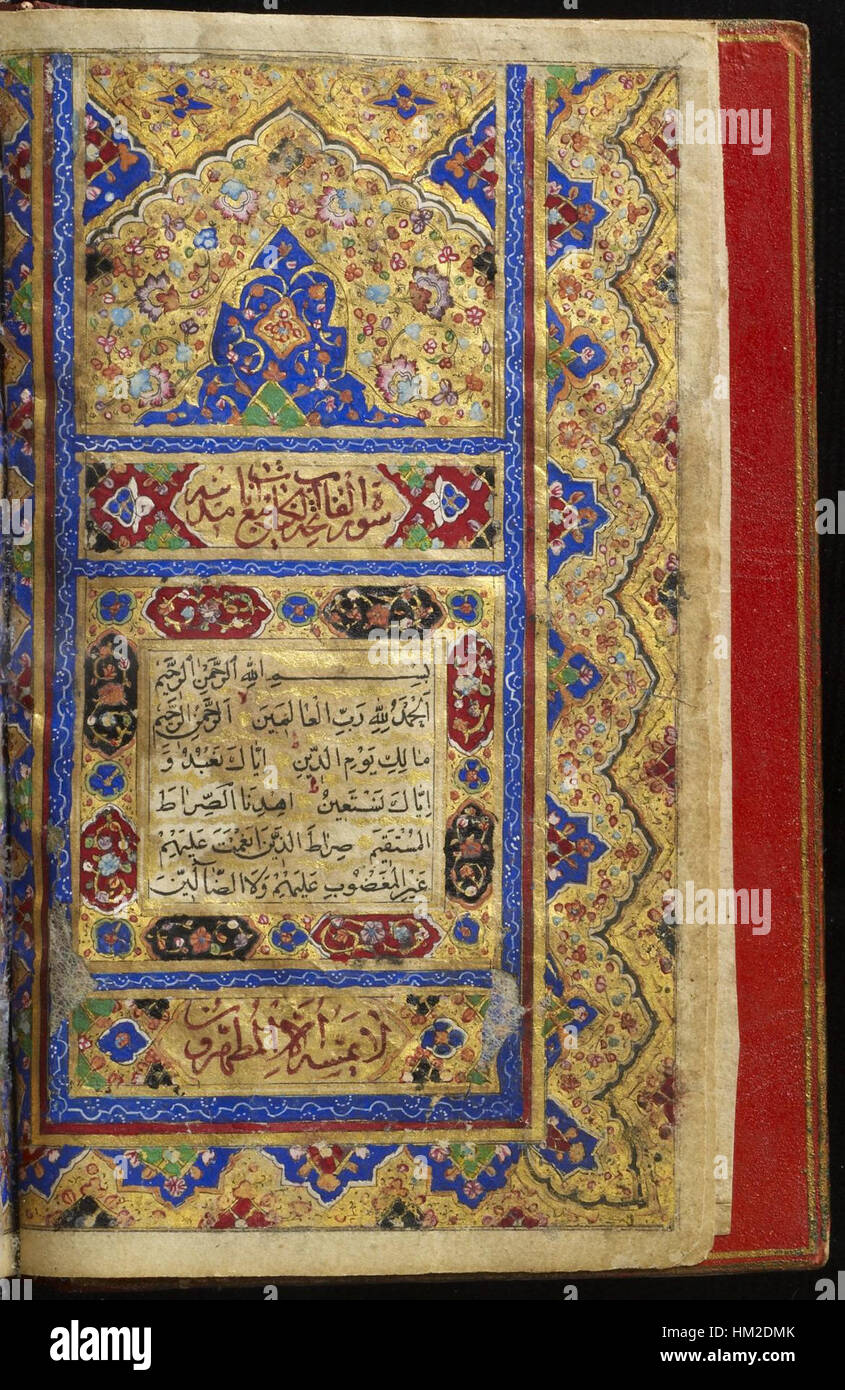 سورة الفاتحة الكتاب سبع ايات مدنيه
بِسْمِ اللهِ الرَّحْمٰنِ الرَّحِيمِ
اَلْحَمْدُ لِلّٰهِ رَبِّ الْعَالَمِينَ اَلرَّحْمٰنِ الرَّحِيمِ
مَالِكِ يَوْمِ الدِّينِ اِيَّاكَ نَعْبُدُ وَ
اِيَّاكَ نَسْتَعِينُ اِهْدِنَا الصِّرَاطَ
الْمُسْتَقِيمَ صِرَاطَ الَّذِينَ اَنْعَمْتَ عَلَيْهِمْ
غَيْرِ الْمَغْضُوبِ عَلَيْهِمْ وَلَا الضَّآلِّينَ
لا يمسه الا المطهرون
a alamy
alamy
a
Image ID: HM2DMK
www.alamy.com